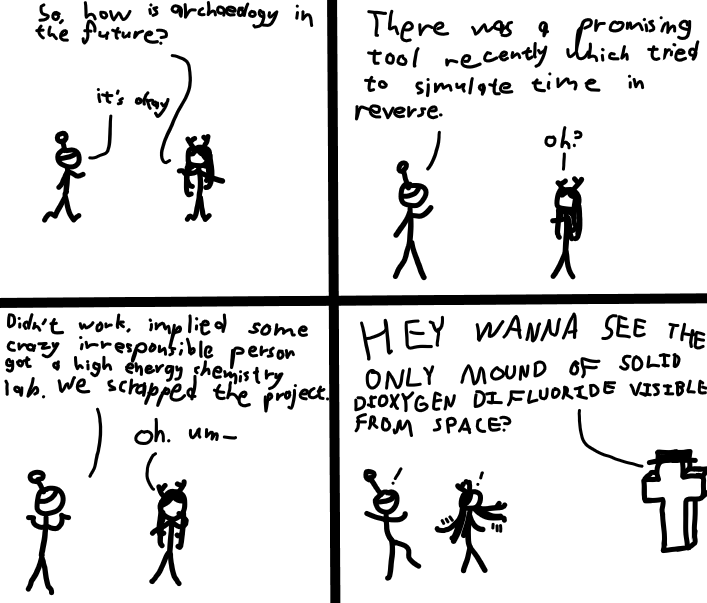 So, how is archaeology in
the future?
it's okay
There was a promising
tool recently which tried
to simulate time in
reverse.
oh?
Didn't work, implied some
crazy irresponsible person
got a high energy chemistry
lab. We scrapped the project.
oh. um—
!
!
HEY WANNA SEE THE
ONLY MOUND OF SOLID
DIOXYGEN DIFLUORIDE VISIBLE
FROM SPACE?